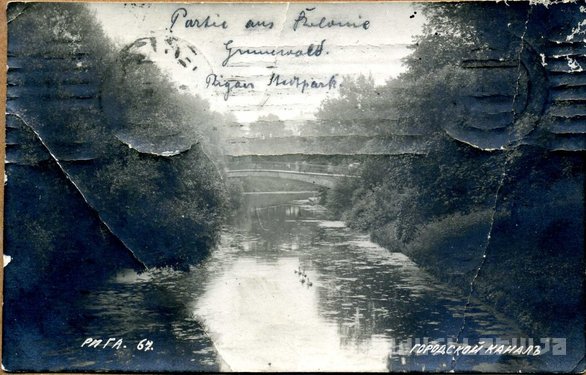 Partie aus Kolonie
Grunewald.
Rigaer Stadtpark.
РИГА. 64.
ГОРОДСКОЙ КАНАЛЪ